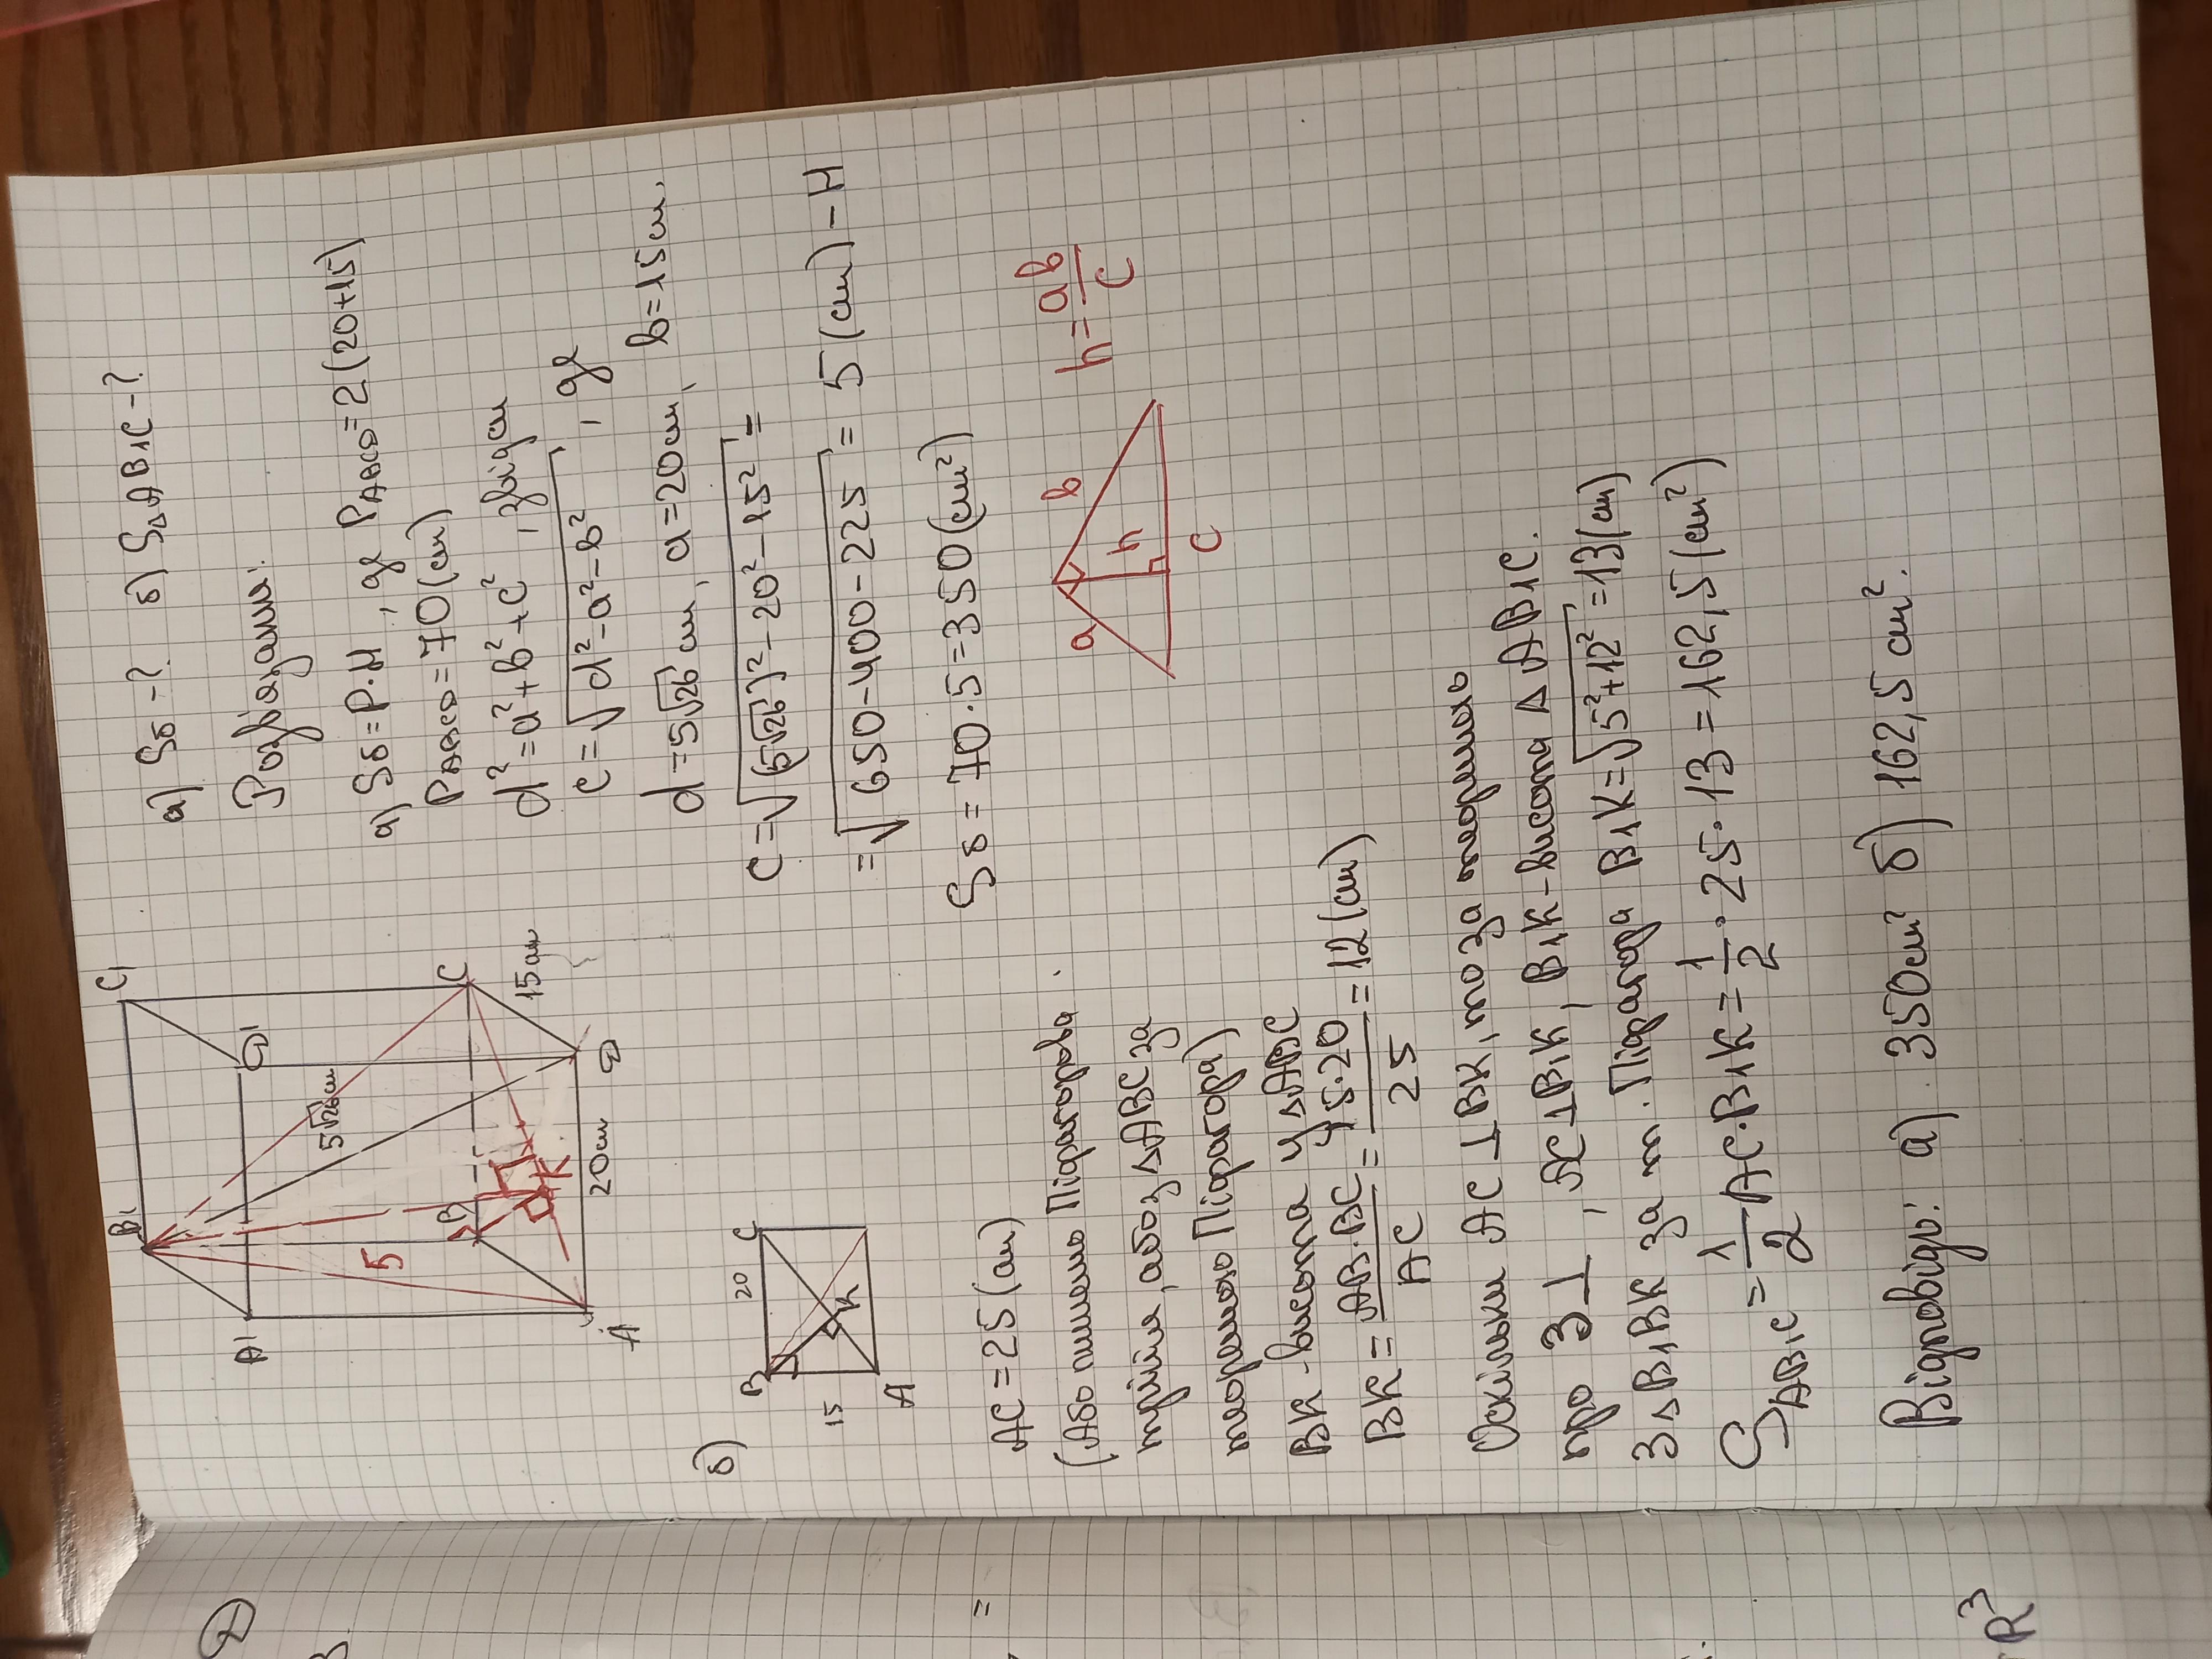 B1
C1
A1
D1
5√26 см
5
B
C
K
15 см
A
20 см
D
а) Sб -? б) S△AB1C -?
Розв'язання:
а) Sб = P·H, де PABCD = 2(20+15)
PABCD = 70 (см)
d² = a²+b²+c², звідси
c = √d²-a²-b², де
d = 5√26 см, a = 20 см, b = 15 см,
c = √(5√26)²-20²-15² =
= √650-400-225 = 5 (см) - H
Sб = 70·5 = 350 (см²)
б)
B
20
C
15
K
A
a
b
h
c
h = ab/c
AC = 25 (см)
(Або пишемо Піфагорова
трійка, або з △ABC за
теоремою Піфагора)
BK - висота у △ABC
BK = AB·BC/AC = 15·20/25 = 12 (см)
Оскільки AC ⊥ BK, то за теоремою
про 3⊥, AC ⊥ B1K, B1K - висота △AB1C.
З △B1BK за т. Піфагора B1K = √5²+12² = 13 (см)
SAB1C = 1/2 AC·B1K = 1/2·25·13 = 162,5 (см²)
Відповідь: а) 350 см² б) 162,5 см².
②
B
=
R³